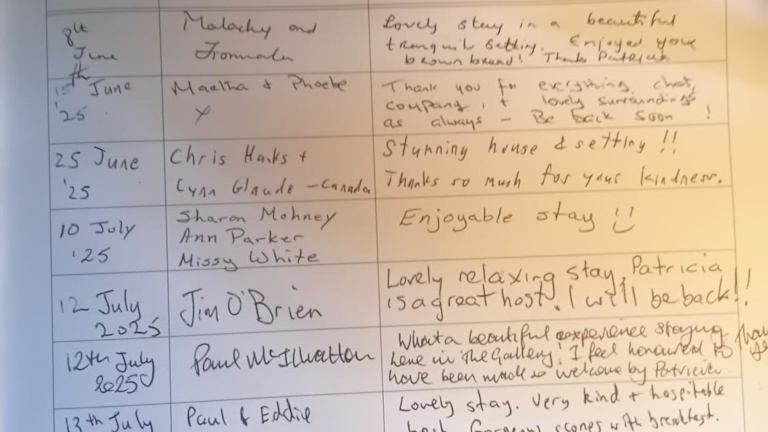 8th June
Malachy and
Lovely stay in a beautiful
tranquil setting. Enjoyed your
brown bread! Thanks Patricia
15th June
'25
Martha & Phoebe
x
Thank you for everything, chat,
company, & lovely surroundings
as always - Be back soon !
25 June
'25
Chris Hawks +
Lynn Glaude - Canada
Stunning house & setting !!
Thanks so much for your kindness.
10 July
'25
Sharon Mohney
Ann Parker
Missy White
Enjoyable stay
12 July
2025
Jim O'Brien
Lovely relaxing stay, Patricia
is a great host. I will be back!!
12th July
2025
Paul
What a beautiful experience staying
here in The Gallery. I feel honoured to
have been made so welcome by Patricia
13th July
Paul & Eddie
Lovely stay. Very kind + hospitable
host. Gorgeous scones with breakfast.